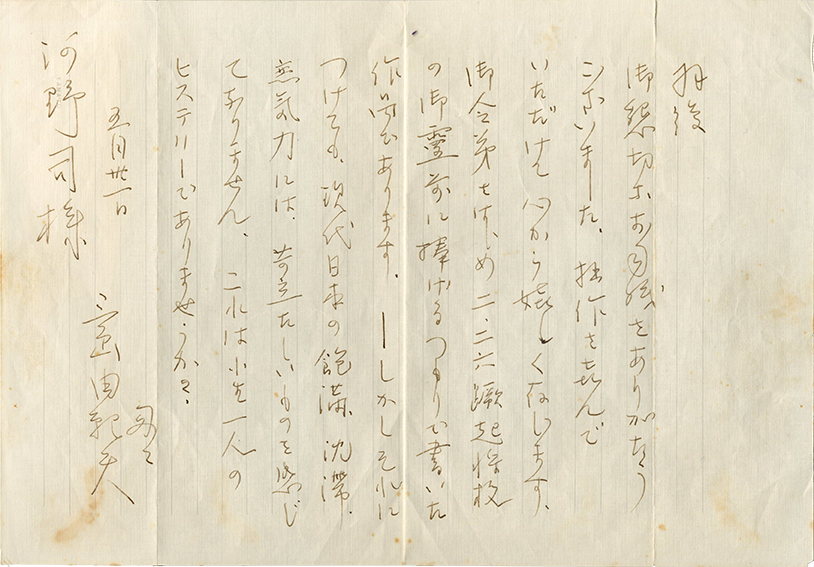 拝復
御懇切なお手紙をありがたう
ございました。拙作を喜んで
いただけて心から嬉しく存じます。
御令弟をはじめ二・二六蹶起将校
の御霊前に捧げるつもりで書いた
作品であります。―しかしそれに
つけても、現代日本の飽満、沈滞、
無気力には、苛立たしいものを感じ
てなりません。これは小生一人の
ヒステリーでありませうか？
匆々
五月卅一日
三島由紀夫
河野司様